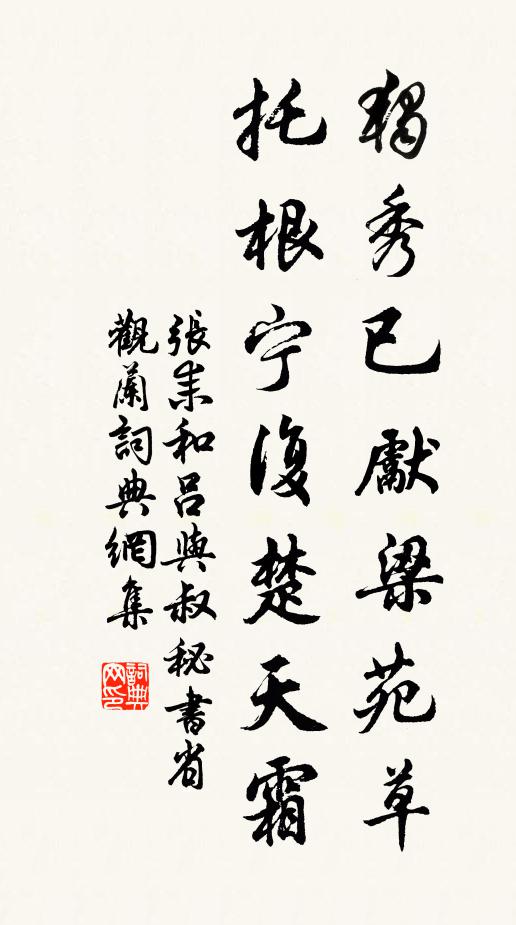 獨秀已獻梁苑草
托根宁復楚天霜
張耒和呂與叔秘書省
觀蘭詞典網集
詞典
网印